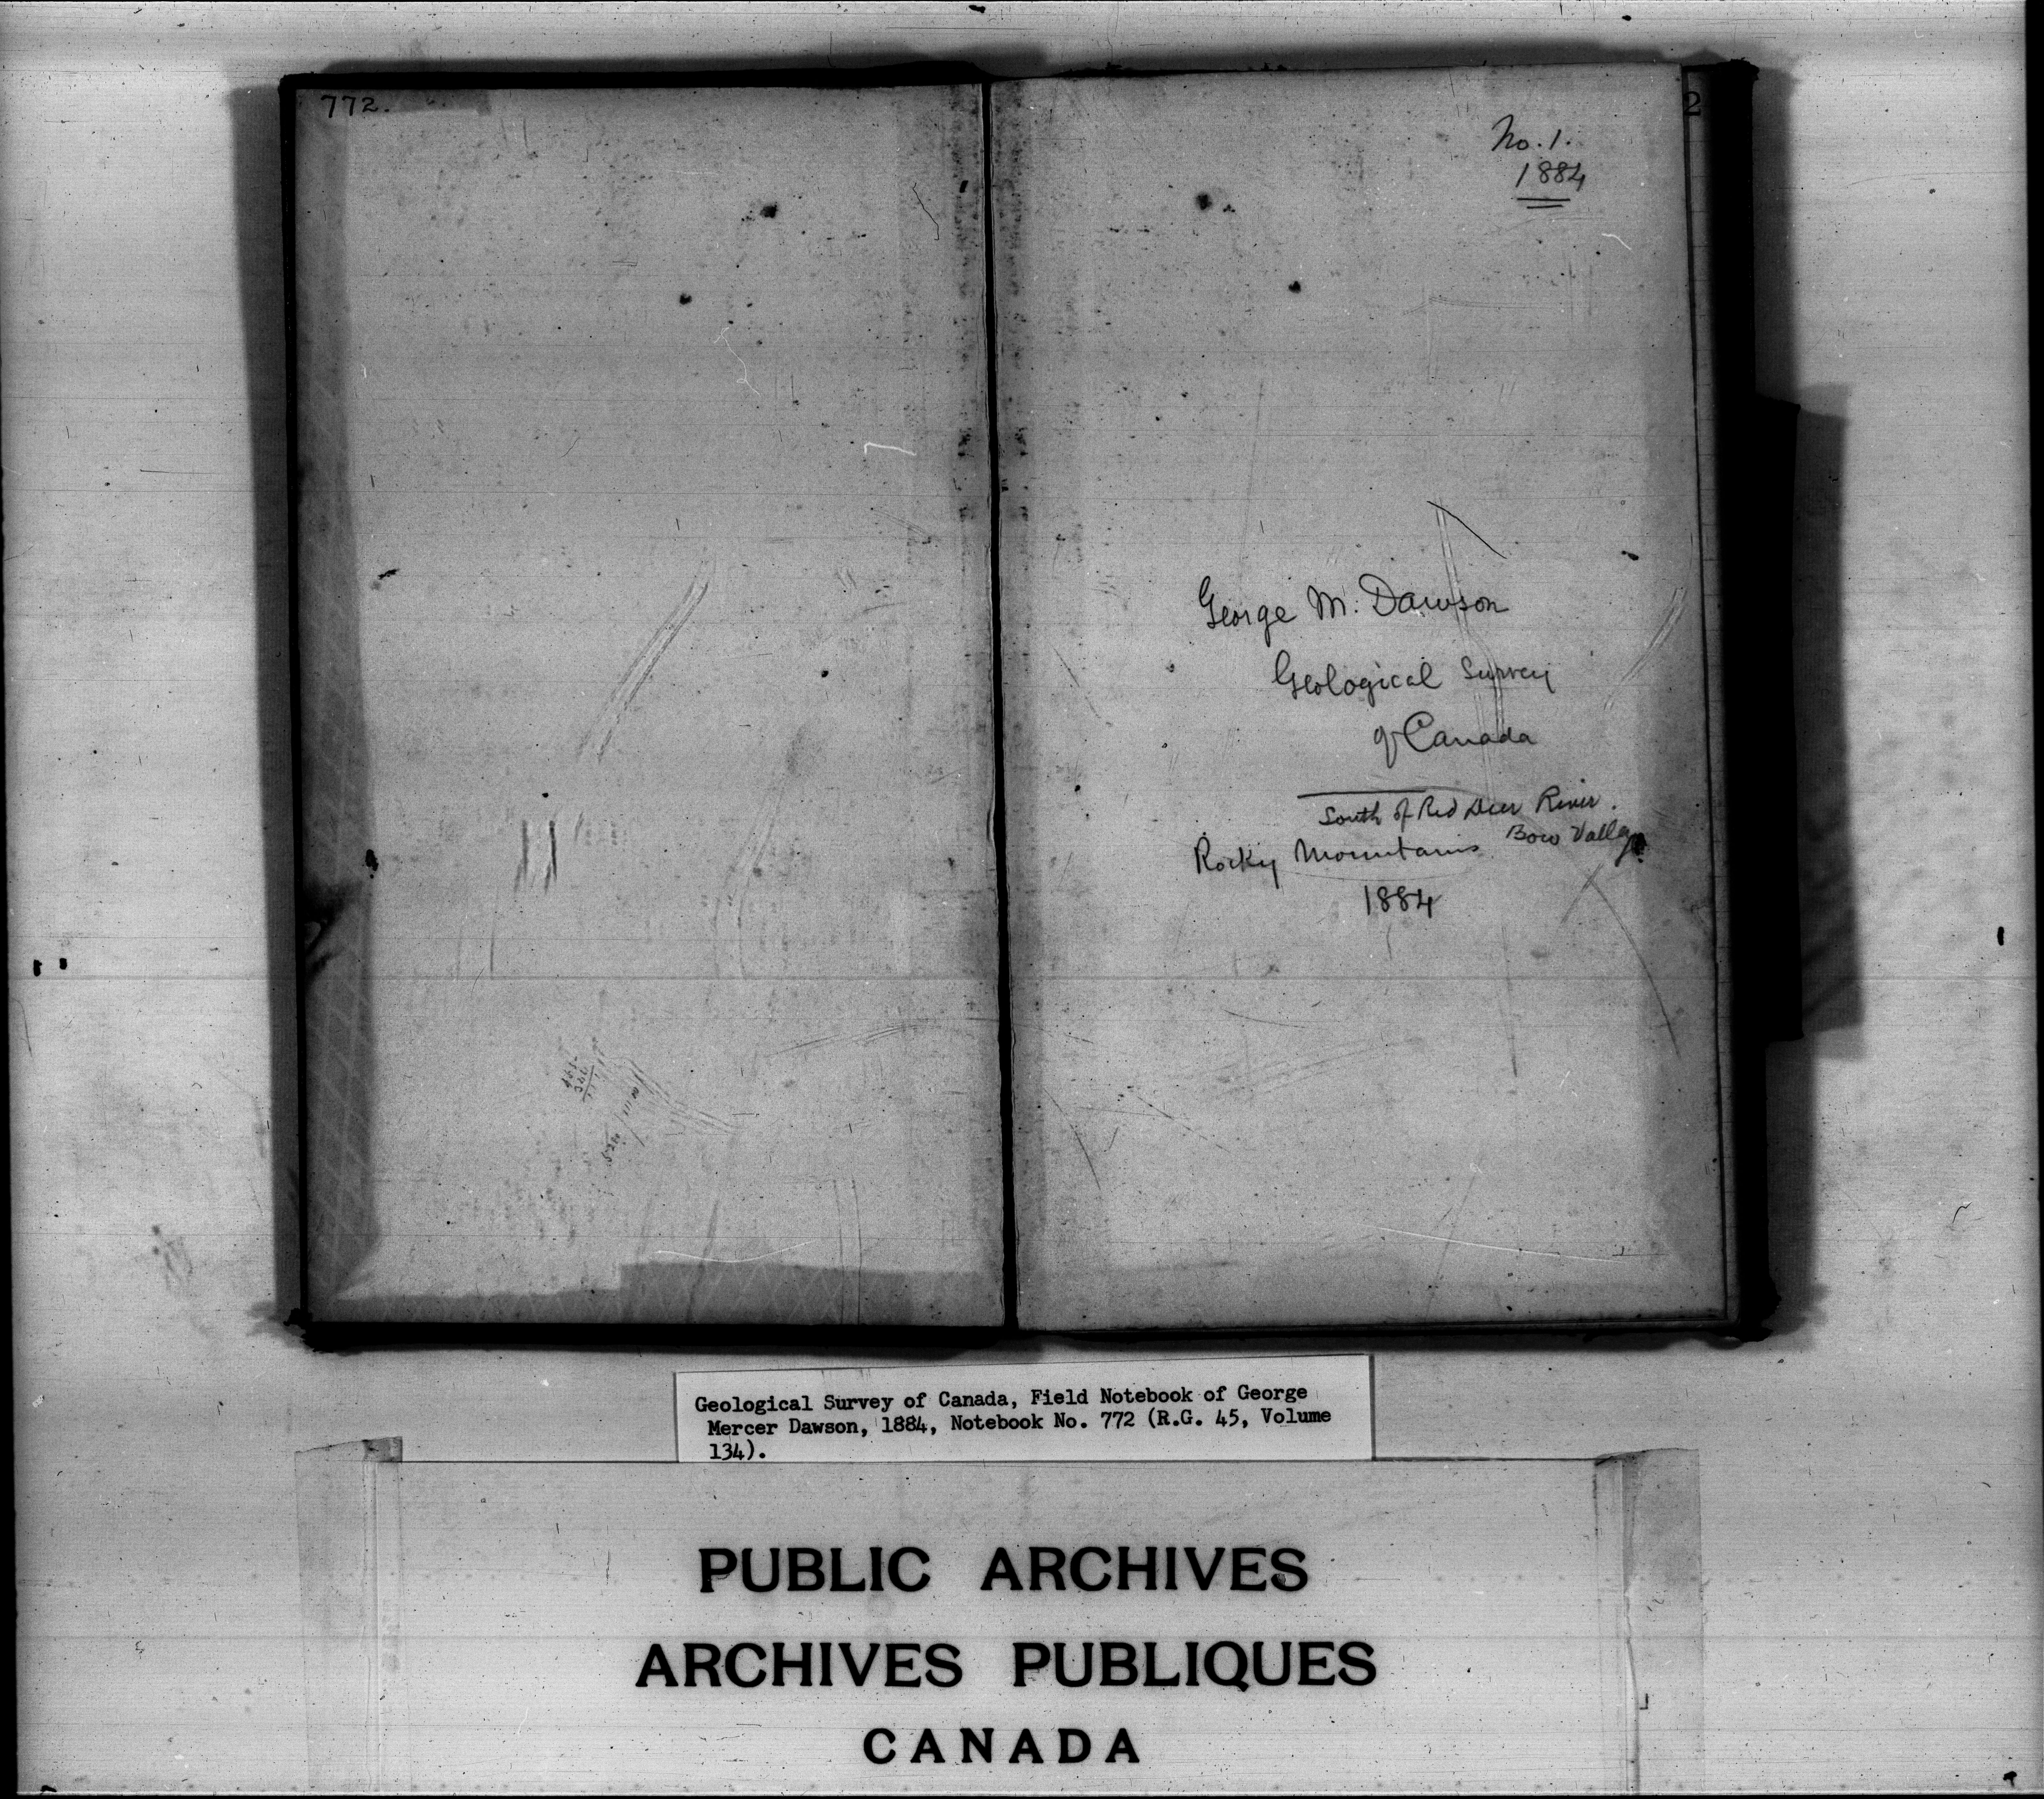 772.
No. 1.
1884
2
George M. Dawson
Geological Survey
of Canada
South of Red Deer River.
Rocky Mountains Bow Valley
1884
Geological Survey of Canada, Field Notebook of George
Mercer Dawson, 1884, Notebook No. 772 (R.G. 45, Volume
134).
PUBLIC ARCHIVES
ARCHIVES PUBLIQUES
CANADA